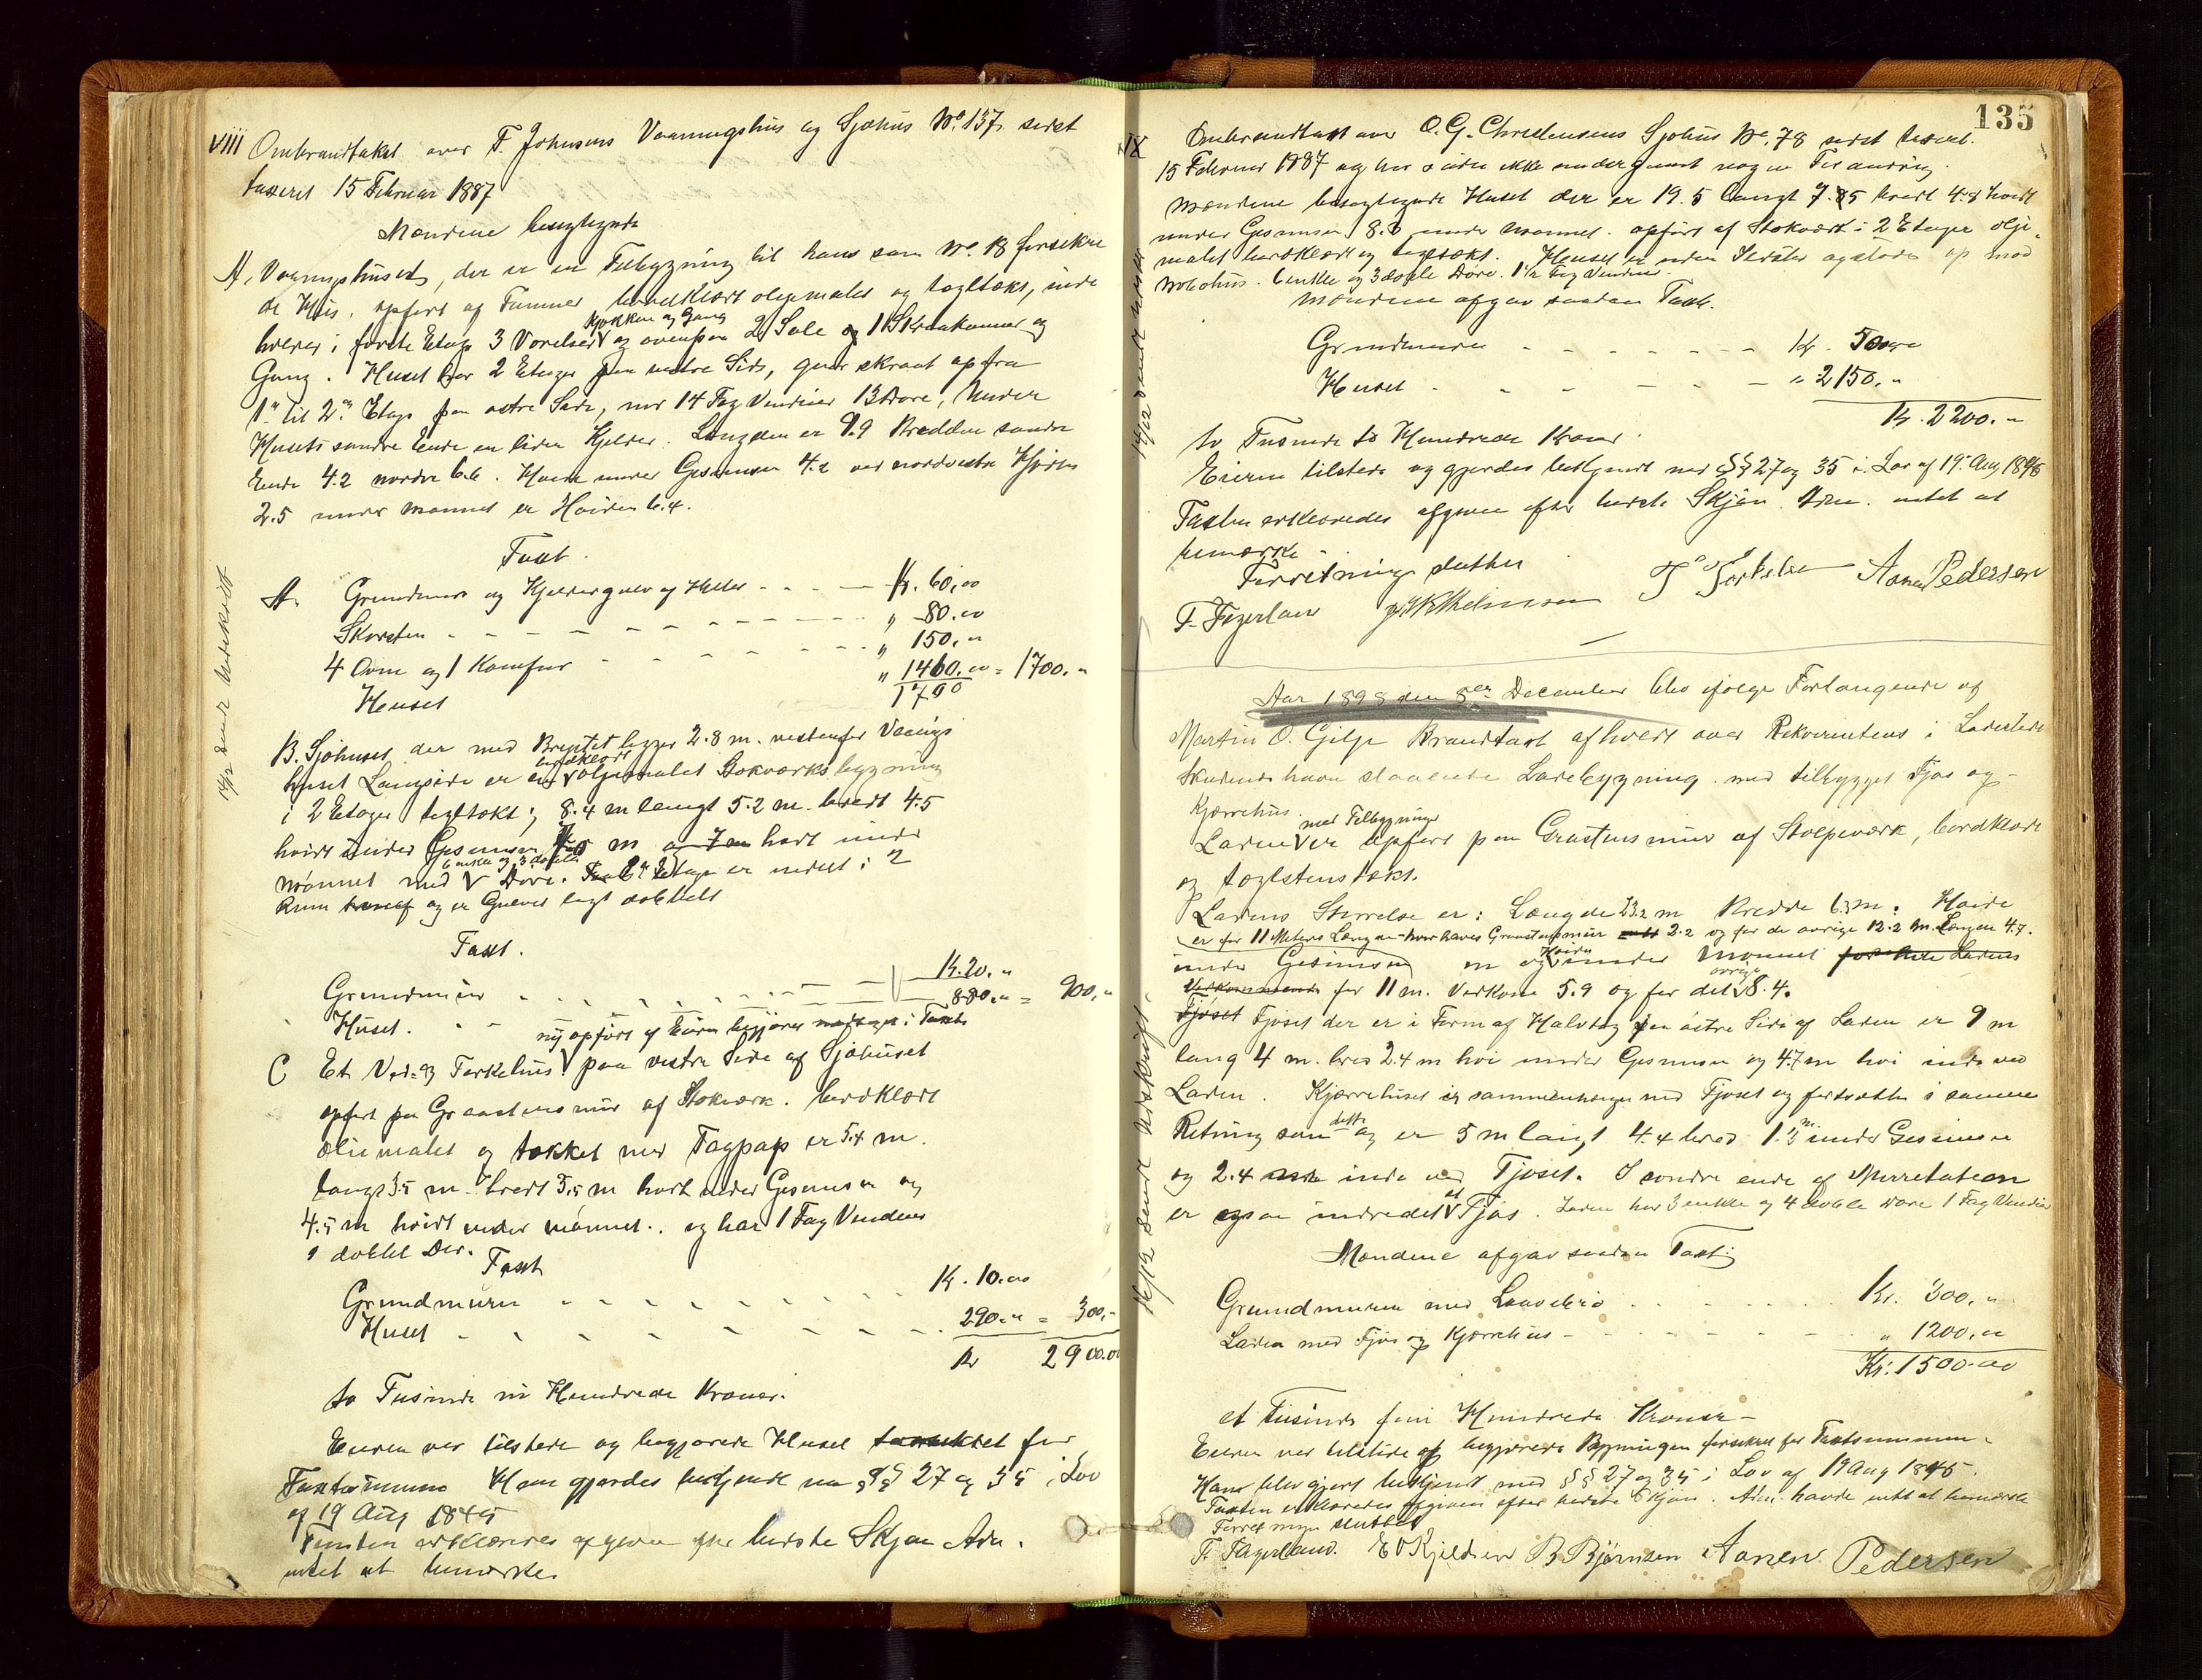 viii Ombrandtakst over T. Johnsens Vaaningshus og Sjøhus No. 137, sidst
taxeret 15 Februar 1887
Mændene besigtigede
A, Vaaningshuset, der er en Tilbygning til hans som No. 18 forsikre
de Hus, opført af Tømmer bordklædt oljemalet og tagltækt, inde
holder i første Etage 3 Værelser kjøkken og Gang og ovenpaa 2 Sale og 1 Skraakammer og
Gang. Huset har 2 Etager paa vestre Side, gaar skraat op fra
1ste til 2den Etage paa østre Side, med 14 Fag Vinduer 13 Døre, Under
Husets søndre Ende en liden Kjelder. Længden er 9.9 Bredden søndre
Ende 4.2 nordre 6.6. Høide under Gesimsen 4.2 ved nordvestre Hjørne
2.5 under Mønnet er Høiden 6.4.
Taxt.
A. Grundmur og Kjeldergulv og Heller - - - Kr. 60,00
Skorsten - - - - " 80.00
4 Ovne og 1 Komfur - - - " 150,"
Huset " 1460.00 = 1700."
1700
B. Sjøhuset der med Brystet ligger 2.8 m. vestenfor Vaanings
huset Langside er en bordklædt oljemalet Stokværksbygning
i 2 Etager tagltækt; 8.4 m langt 5.2 m. bredt 4.5
høidt under Gesimsen m og 7 m høit under
Mønnet med 6 enkle og 3 doble Døre. Etage er indret i 2
Rum og er Gulvet lagt dobbelt
Taxt.
Grundmuren - - - Kr. 20."
Huset. - - 880." = 900,"
ny opført af Eieren begjæres i Taxt
C Et Ved- og Tørkehus paa vestre Side af Sjøhuset
opført paa Graastensmur af Stokværk. bordklædt
oliemalet og tækket med Tagpap er 5.4 m.
langt 3.5 m. bredt 3.5 m høit under Gesimsen og
4.5 m høidt under Mønnet. og har 1 Fag Vinduer
1 dobbel Dør.
Taxt
Grundmuren - - - Kr. 10.00
Huset - - - 290." = 300,"
Kr 2900.00
to Tusinde ni Hundrede Kroner.
Eieren var tilstede og begjærede Huset forsikret for
Taxtsummen Han gjordes bekjendt med §§ 27 og 35 i Lov
af 19 Aug 1845
Taxten erklæredes afgiven efter bedste Skjøn Adm.
intet at bemærke.
14/12 sendt Udskrift
135
IX Ombrandtaxt over O. G. Christensens Sjøhus No. 78 sidst taxeret
15 Februar 1887 og har siden ikke undergaaet nogen Forandring
Mændene besigtigede Huset der er 19.5 langt 7.85 bredt 4.8 høidt
under Gesimsen 8.0 under Mønnet. opført af Stokværk i 2 Etager olje
malet bordklædt og tagltækt. Huset er uden Ildsted og støder op mod
Nabohus. 6 enkle og 3 doble Døre. Fag Vinduer.
Mændene afgav saadan Taxt.
Grundmuren - - - Kr. 50,00
Huset - - - " 2150."
Kr. 2200."
to Tusinde to Hundrede Kroner.
Eieren tilstede og gjordes bekjendt med §§ 27 og 35 i Lov af 19. Aug 1845
Taxten erklæredes afgiven efter bedste Skjøn. Adm. intet at
bemærke.
Forretningen sluttet
T. Fagerland Vilhelmsen T Torkelsen Aanen Pedersen
Aar 1898 den 8de December blev ifølge Forlangende af
Martin O. Gilje Brandtaxt afholdt over Rekvirentens i Ladested
Skudeneshavn staaende Ladebygning med tilbygget Fjøs og
Kjærrehus.
Laden med Tilbygninger er opført paa Graastensmur af Stolpeværk, bordklædt
og taglstenstækt.
Ladens Størrelse er: Længde 23.2 m Bredde 6.3 m. Høide
er for 11 Meters Længde hvor haves Graastensmur 2.2 og for de øvrige 12.2 m. Længde 4.7.
under Gesimsen m og Høiden under Mønnet for hele Ladens
Vedkommende for 11 m. Vedkom 5.9 og for det øvrige 8.4.
Fjøset Fjøset der er i Form af Halvtag paa østre Side af Laden er 9 m
lang 4 m. bred 2.4 m høi under Gesimsen og 4.7 m høi inde ved
Laden. Kjærrehuset er sammenhængende med Fjøset og fortsætter i samme
Retning som dette og er 5 m langt 4.4 bred 1.3 m under Gesimsen
og 2.4 inde ved Fjøset. I søndre ende af Murretaten
er ogsaa indredet et Fjøs. Laden har 3 enkle og 4 doble Døre 1 Fag Vinduer
Mændene afgav saadan Taxt:
Grundmuren med Laavebro - - - Kr. 300,"
Laden med Fjøs og Kjærrehus - - - " 1200,00
Kr: 1500.00
et Tusinde fem Hundrede Kroner -
Eieren var tilstede og begjærede Bygningen forsikret for Taxtsummen.
Han blev gjort bekjendt med §§ 27 og 35 i Lov af 19 Aug 1845.
Taxten erklæredes afgiven efter bedste Skjøn. Adm. havde intet at bemærke
Forretningen sluttet
T. Fagerland. E O Kjeldsen B Bjørnsen Aanen Pedersen
14/12 sendt Udskrift